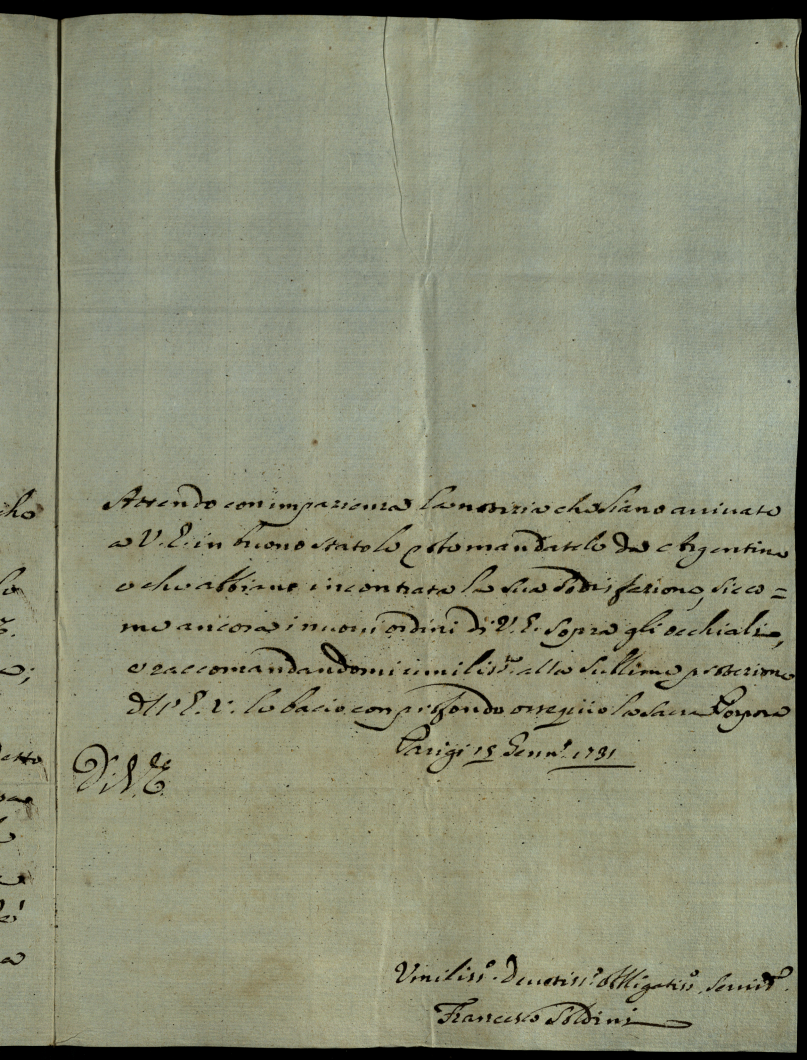 che
Attendo con impazienza la notizia che siano arrivate
a V. E. in buono stato le mandatele da Argentina
e che abbiano incontrata la sua sodisfazione, sicco=
me ancora i nuovi ordini di V. E. sopra gli occhiali,
e raccomandandomi umiliss.e alla sublime protezione
dell' E. V. le bacio con profondo ossequio la sacra Porpora
Parigi 15 Genn.o 1731
Di V. E.
detto
Umiliss.o Devotiss.o Obbligatiss.o Servid.e
Francesco Soldini